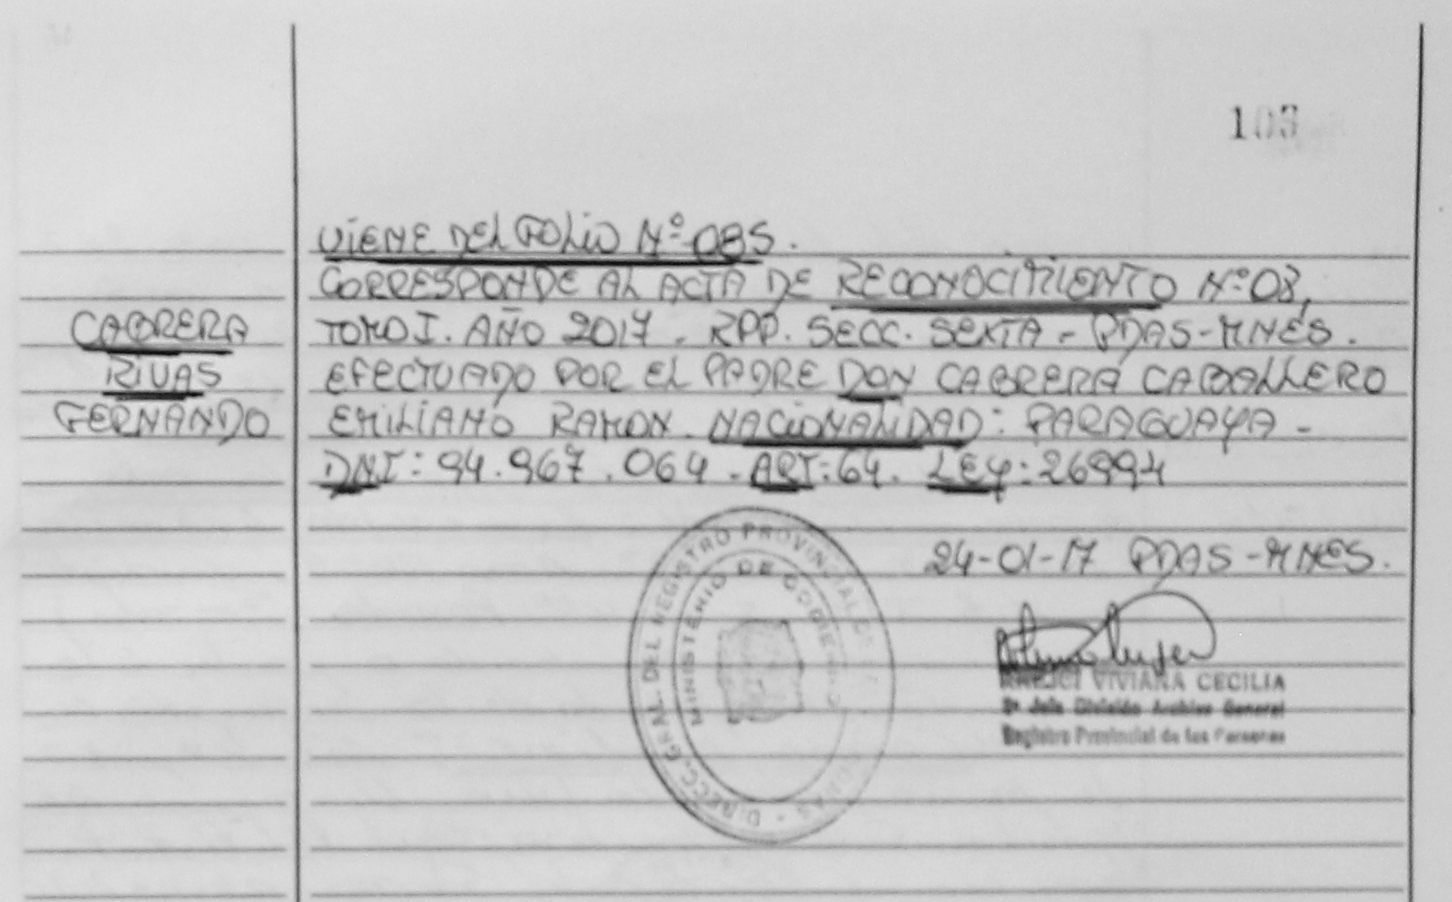 103
VIENE DEL FOLIO Nº 085.
CORRESPONDE AL ACTA DE RECONOCIMIENTO Nº 03,
CABRERA
TOMO I. AÑO 2017 - RPP. SECC. SEXTA - PDAS-MNES.
RIVAS
EFECTUADO POR EL PADRE DON CABRERA CABALLERO
FERNANDO
EMILIANO RAMON. NACIONALIDAD: PARAGUAYA -
DNI: 94.967.064 - ART: 64. LEY: 26994
24-01-17 PDAS-MNES.
DIRECC. GRAL. DEL REGISTRO PROVINCIAL DE
MINISTERIO DE GOBIERNO
VIVIANA CECILIA
2º Jefe División Archivo General
Registro Provincial de las Personas